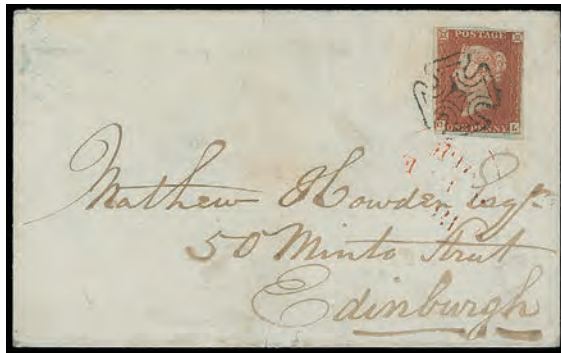 POSTAGE
ONE PENNY L
Mathew Howden Esqr
50 Minto Street
Edinburgh